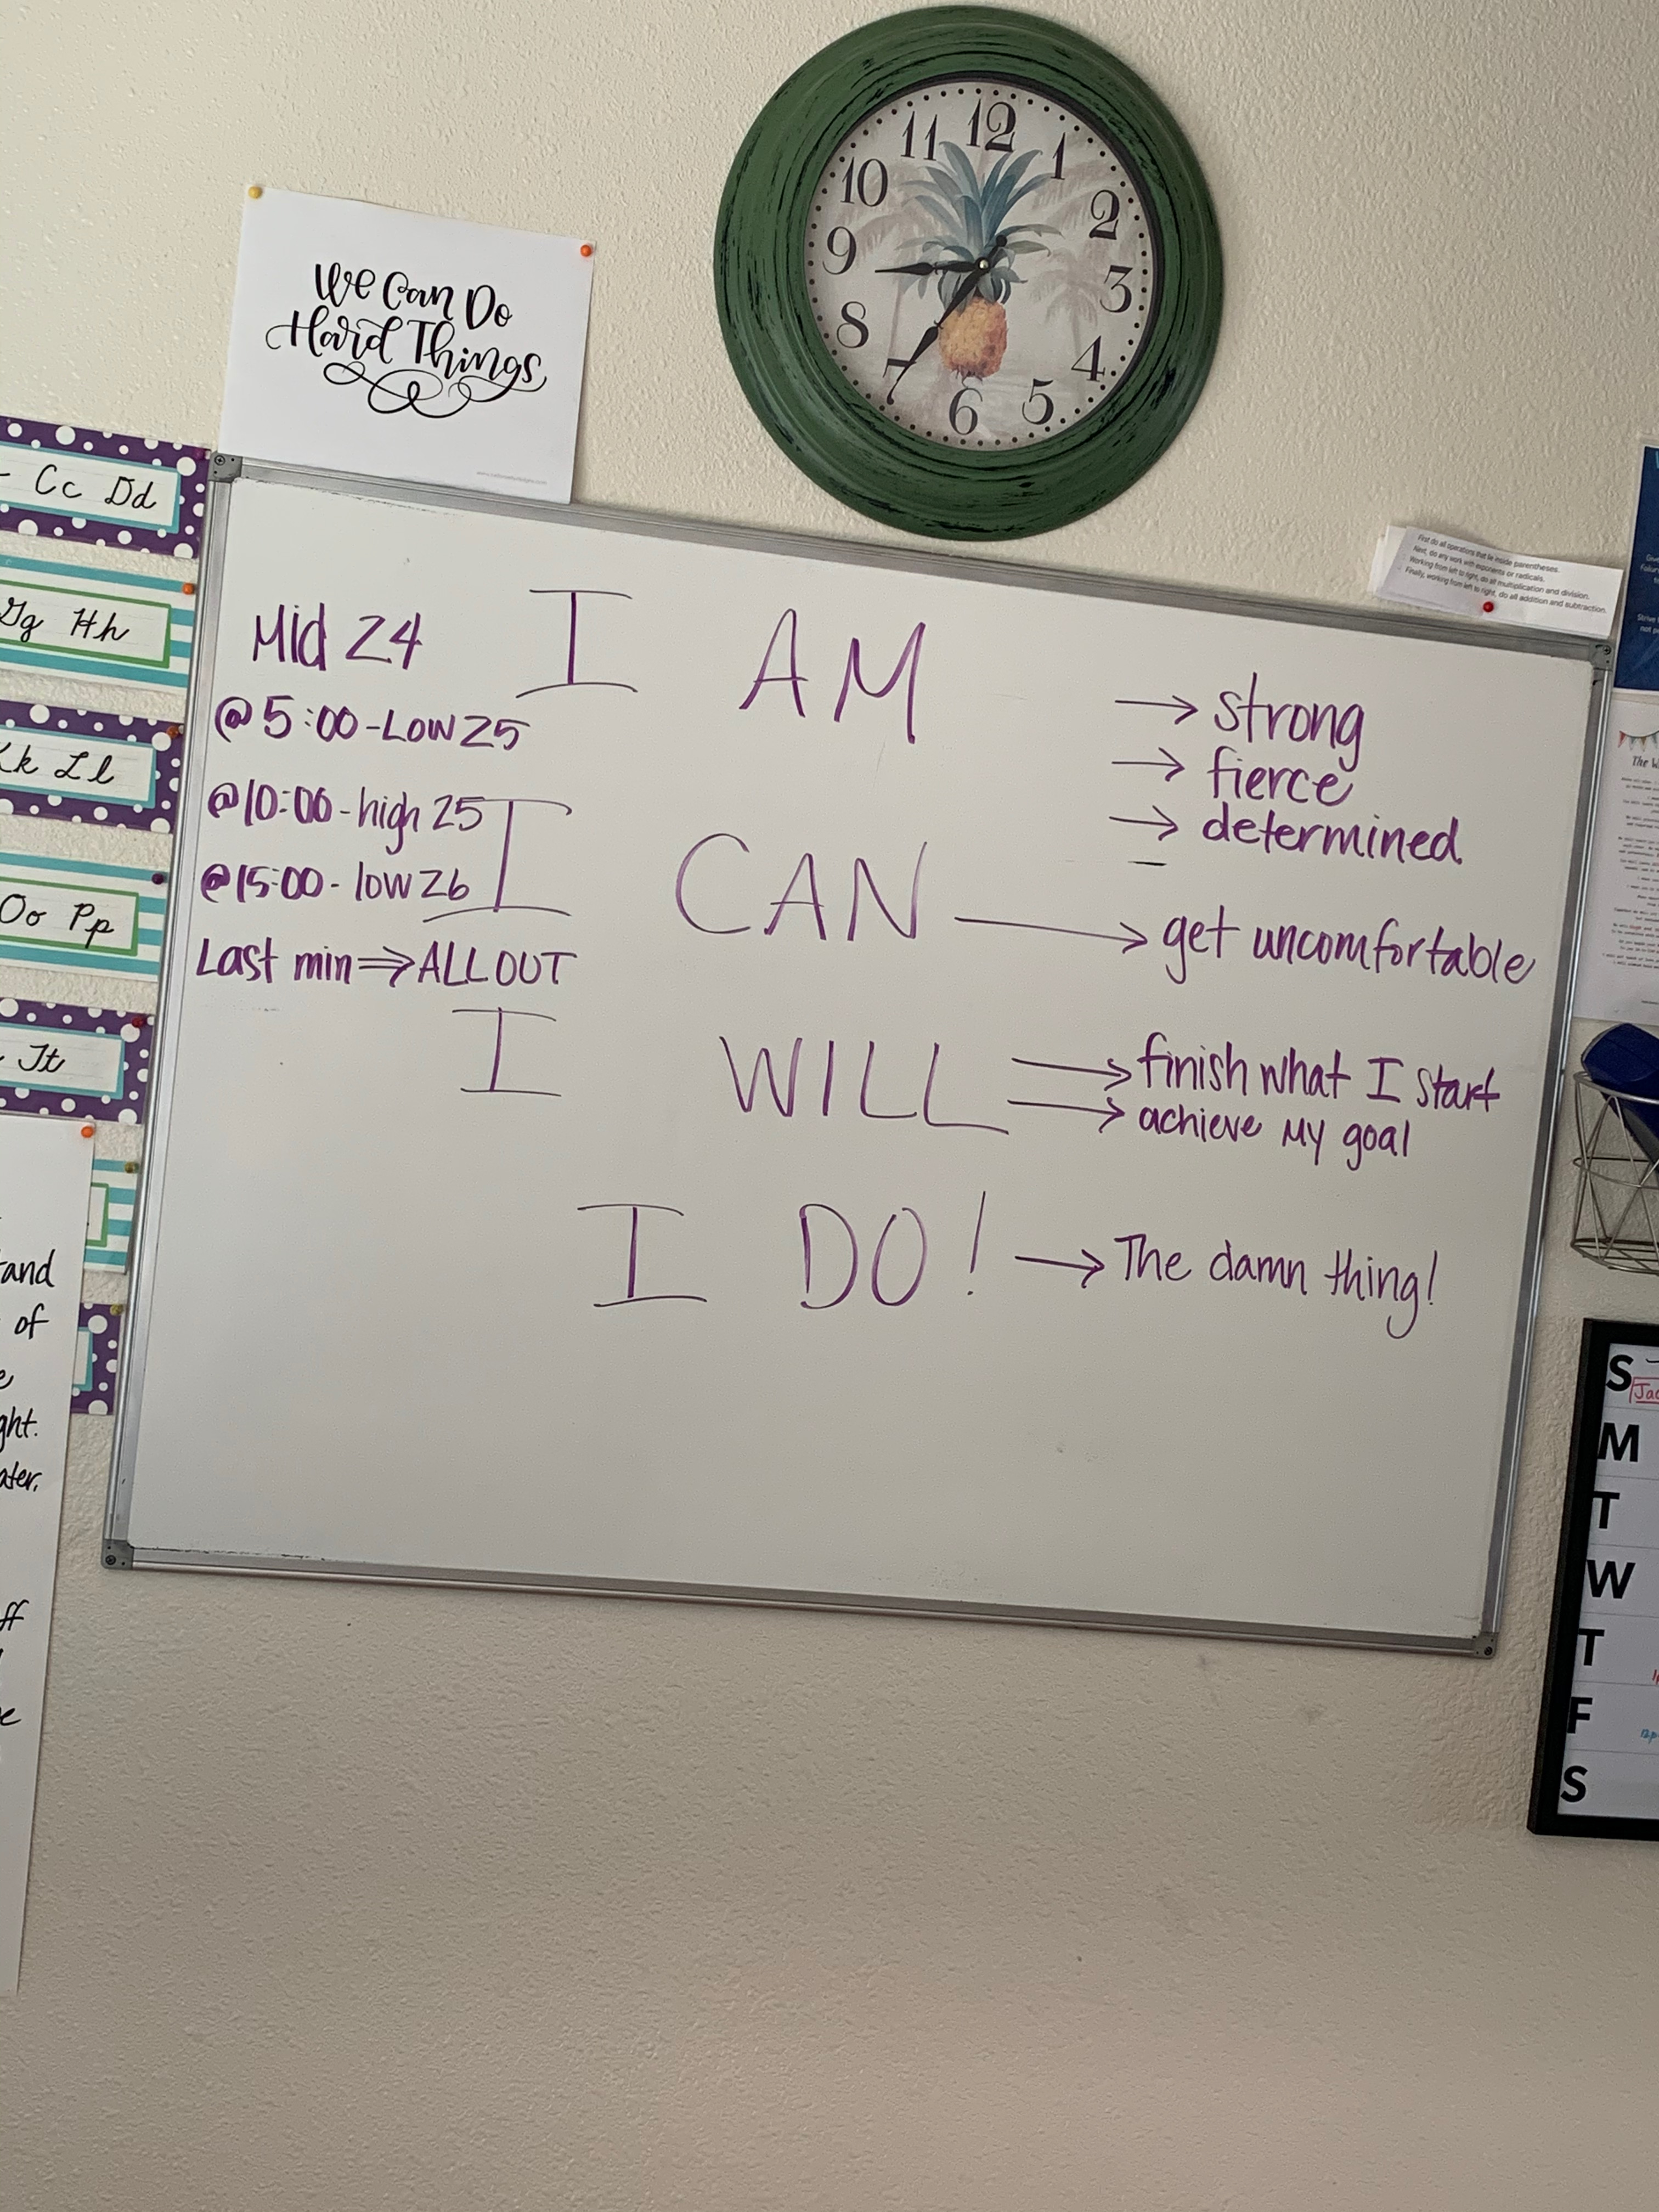 12
1
2
3
4
5
6
7
8
9
10
11
We Can Do
Hard Things
Cc Dd
Gg Hh
Kk Ll
Oo Pp
Tt
First do all operations that lie inside parentheses.
Next, do any work with exponents or radicals.
Working from left to right, do all multiplication and division.
Finally, working from left to right, do all addition and subtraction.
Mid 24
@5:00-Low 25
@10:00-high 25
@15:00-low 26
Last min⇒ALL OUT
I AM → strong
→ fierce
→ determined
I CAN → get uncomfortable
I WILL → finish what I start
→ achieve my goal
I DO! → The damn thing!
and
of
S
M
T
W
T
F
S